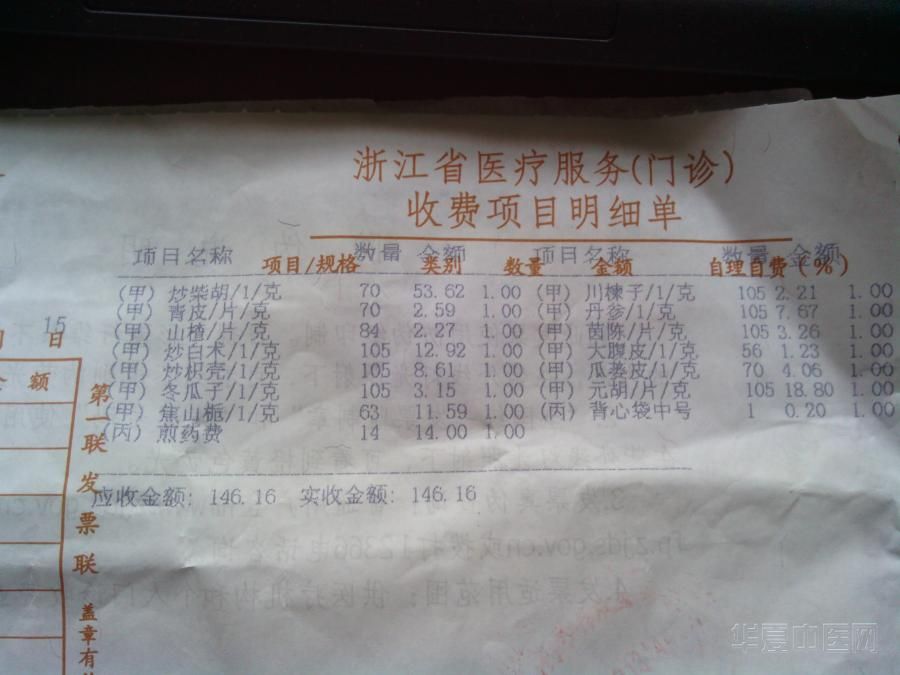 浙江省医疗服务(门诊)
收费项目明细单
项目名称 数量 金额 项目名称 数量 金额
项目/规格 类别 数量 金额 自理自费(%)
(甲) 炒柴胡/1/克 70 53.62 1.00 (甲) 川楝子/1/克 105 2.21 1.00
(甲) 青皮/片/克 70 2.59 1.00 (甲) 丹参/1/克 105 7.67 1.00
(甲) 山楂/片/克 84 2.27 1.00 (甲) 茵陈/片/克 105 3.26 1.00
(甲) 炒白术/1/克 105 12.92 1.00 (甲) 大腹皮/1/克 56 1.23 1.00
(甲) 炒枳壳/1/克 105 8.61 1.00 (甲) 瓜蒌皮/1/克 70 4.06 1.00
(甲) 冬瓜子/1/克 105 3.15 1.00 (甲) 元胡/片/克 105 18.80 1.00
(甲) 焦山栀/1/克 63 11.59 1.00 (丙) 背心袋中号 1 0.20 1.00
(丙) 煎药费 14 14.00 1.00
应收金额: 146.16 实收金额: 146.16
15
日
金额
第一联发票联
盖章有
华夏中医网